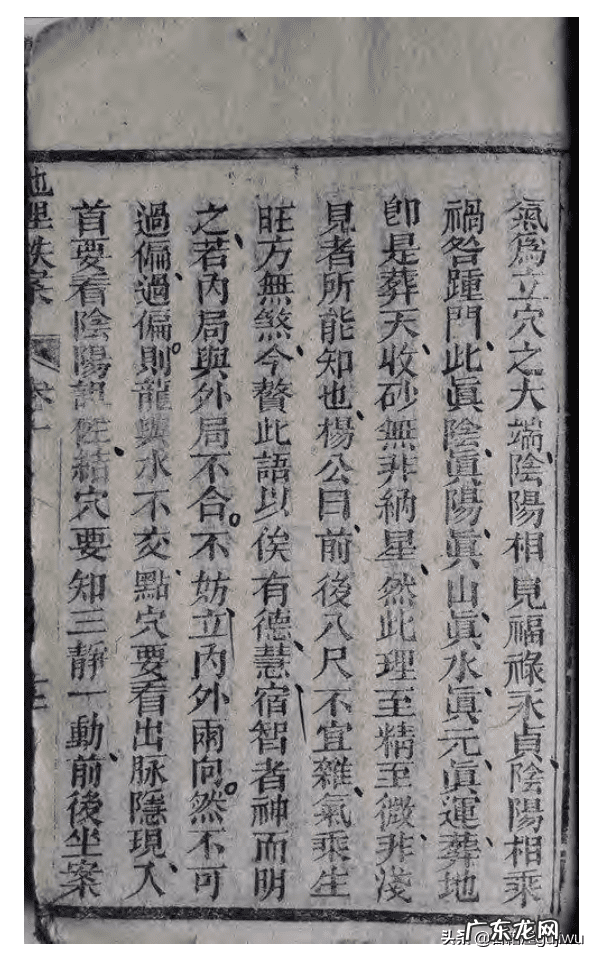 氣爲立穴之大端、陰陽相見福祿永貞陰陽相乘
禍咎踵門、此眞陰眞陽、眞山眞水、眞元眞運、葬地
卽是葬天、收砂無非納星、然此理至精至微、非淺
見者所能知也、楊公曰、前後八尺不宜雜、氣乘生
旺方無煞、今贅此語以俟有德慧宿智者神而明
之、若內局與外局不合。不妨立內外兩向。然不可
過偏、過偏則。龍與水不交、點穴要看出脉隱現、入
首要看陰陽結穴要知三靜一動、前後坐案
地理鉄案
头条
广东龙网